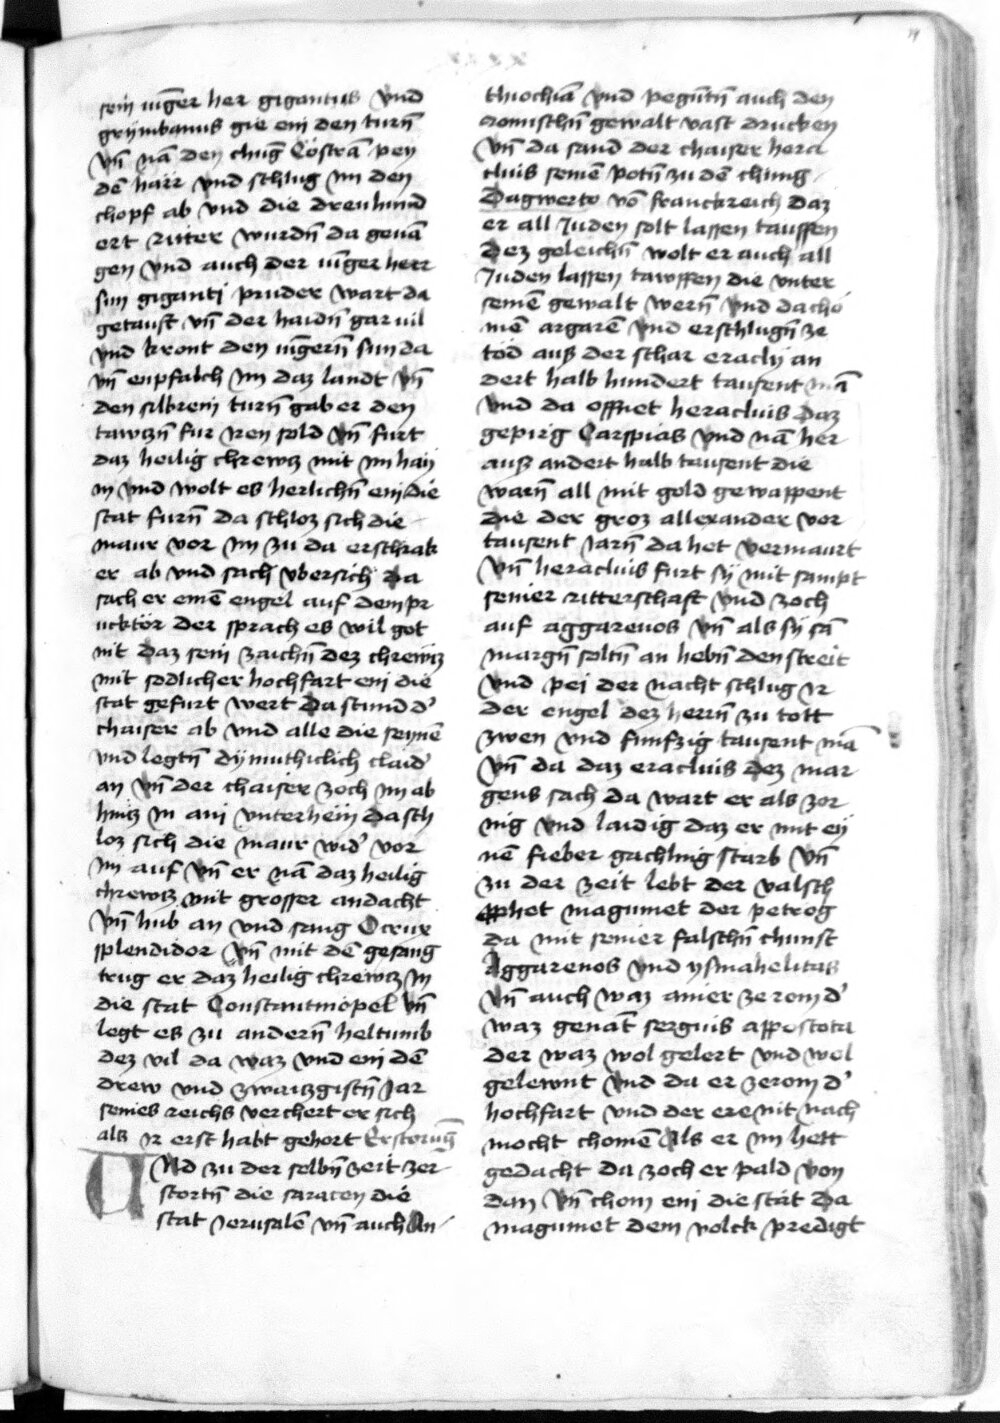 sein iūger her gigantus vnd
grymbanus gie ein den turn̄
vn̄ nā den chūg Costrā pey
dē harr vnd schlug im den
chopf ab vnd die dreyhund
ert ritter wurdn̄ da geuā
gen vnd auch der iūger herr
sun giganti pruder wart da
getauft vn̄ der haidn̄ gar vil
vnd kront den iūgern̄ sun da
vn̄ enpfalch im daz landt vn̄
den silbrein turn̄ gab er den
tawtzn̄ fur iren sold vn̄ furt
daz heilig chrewtz mit im hay
m vnd wolt es herlichn̄ ein die
stat furn̄ da schloz sich die
maur vor im zu da erschrak
er ab vnd sach vbersich da
sach er einē engel auf dem pr
ucktor der sprach es wil got
nit daz sein zaichn̄ dez chrewtz
mit sodlicher hochfart ein die
stat gefurt wert Da stund d'
chaiser ab vnd alle die seinē
vnd legtn̄ dymuthiclich claid'
an vn̄ der chaiser zoch im ab
hintz in ain vnterhem da sch
loz sich die maur wid' vor
im auf vn̄ er nā daz heilig
chrewtz mit grosser andacht
vn̄ hub an vnd sang O crux
splendidor vn̄ mit dē gesang
trug er daz heilig chrewtz in
die stat Constantinopel vn̄
legt es zu andern̄ heltumb
dez vil da waz vnd ein dē
drew vnd zwaitzgistn̄ Jar
seines reichs verchert er sich
als ir erst habt gehort Erstorūg
Und zu der selbn̄ zeit zer
stortn̄ die saracen die
stat Jerusalē vn̄ auch An
thiochiā vnd pegūtn̄ auch den
romischn̄ gewalt vast drucken
vn̄ da sand der chaiser hera
cluis seinē potn̄ zu dē chung
Dagwerto vō franckreich daz
er all Juden solt lassen tauffen
Dez geleichn̄ wolt er auch all
Juden lassen tawffen die vnter
seinē gewalt wern̄ vnd da cho
mē agarē vnd erschlugn̄ ze
tod aus der schar eraclij an
dert halb hundert tausent mā
vnd da offnet heracluis daz
gepirg Carspias vnd nā her
aus andert halb tausent die
warn̄ all mit gold gewappent
die der groz allexander vor
tausent Jarn̄ da het vermaurt
vn̄ heracluis furt sy mit sampt
seiner ritterschaft vnd zoch
auf aggarenos vn̄ als sy sā
margn̄ soltn̄ an hebn̄ den streit
vnd pei der nacht schlug ir
der engel dez herrn̄ zu tott
zwen vnd funfzig tausent mā
vn̄ da daz eracluis dez mar
gens sach da wart er als zor
nig vnd laidig daz er mit ey
nē fieber gachling starb vn̄
zu der zeit lebt der valsch
pphet magumet der petrog
da mit seiner falschn̄ chunst
Aggarenos vnd ysmahelitas
vn̄ auch waz ainer ze rom d'
waz genāt serguis appostota
der waz wol gelert vnd wol
gelewnt vnd da er ze rom d'
hochfart vnd der ere nit nach
mocht chomē Als er im hett
gedacht da zoch er pald von
dan vn̄ chom ein die stat da
magumet dem volck predigt